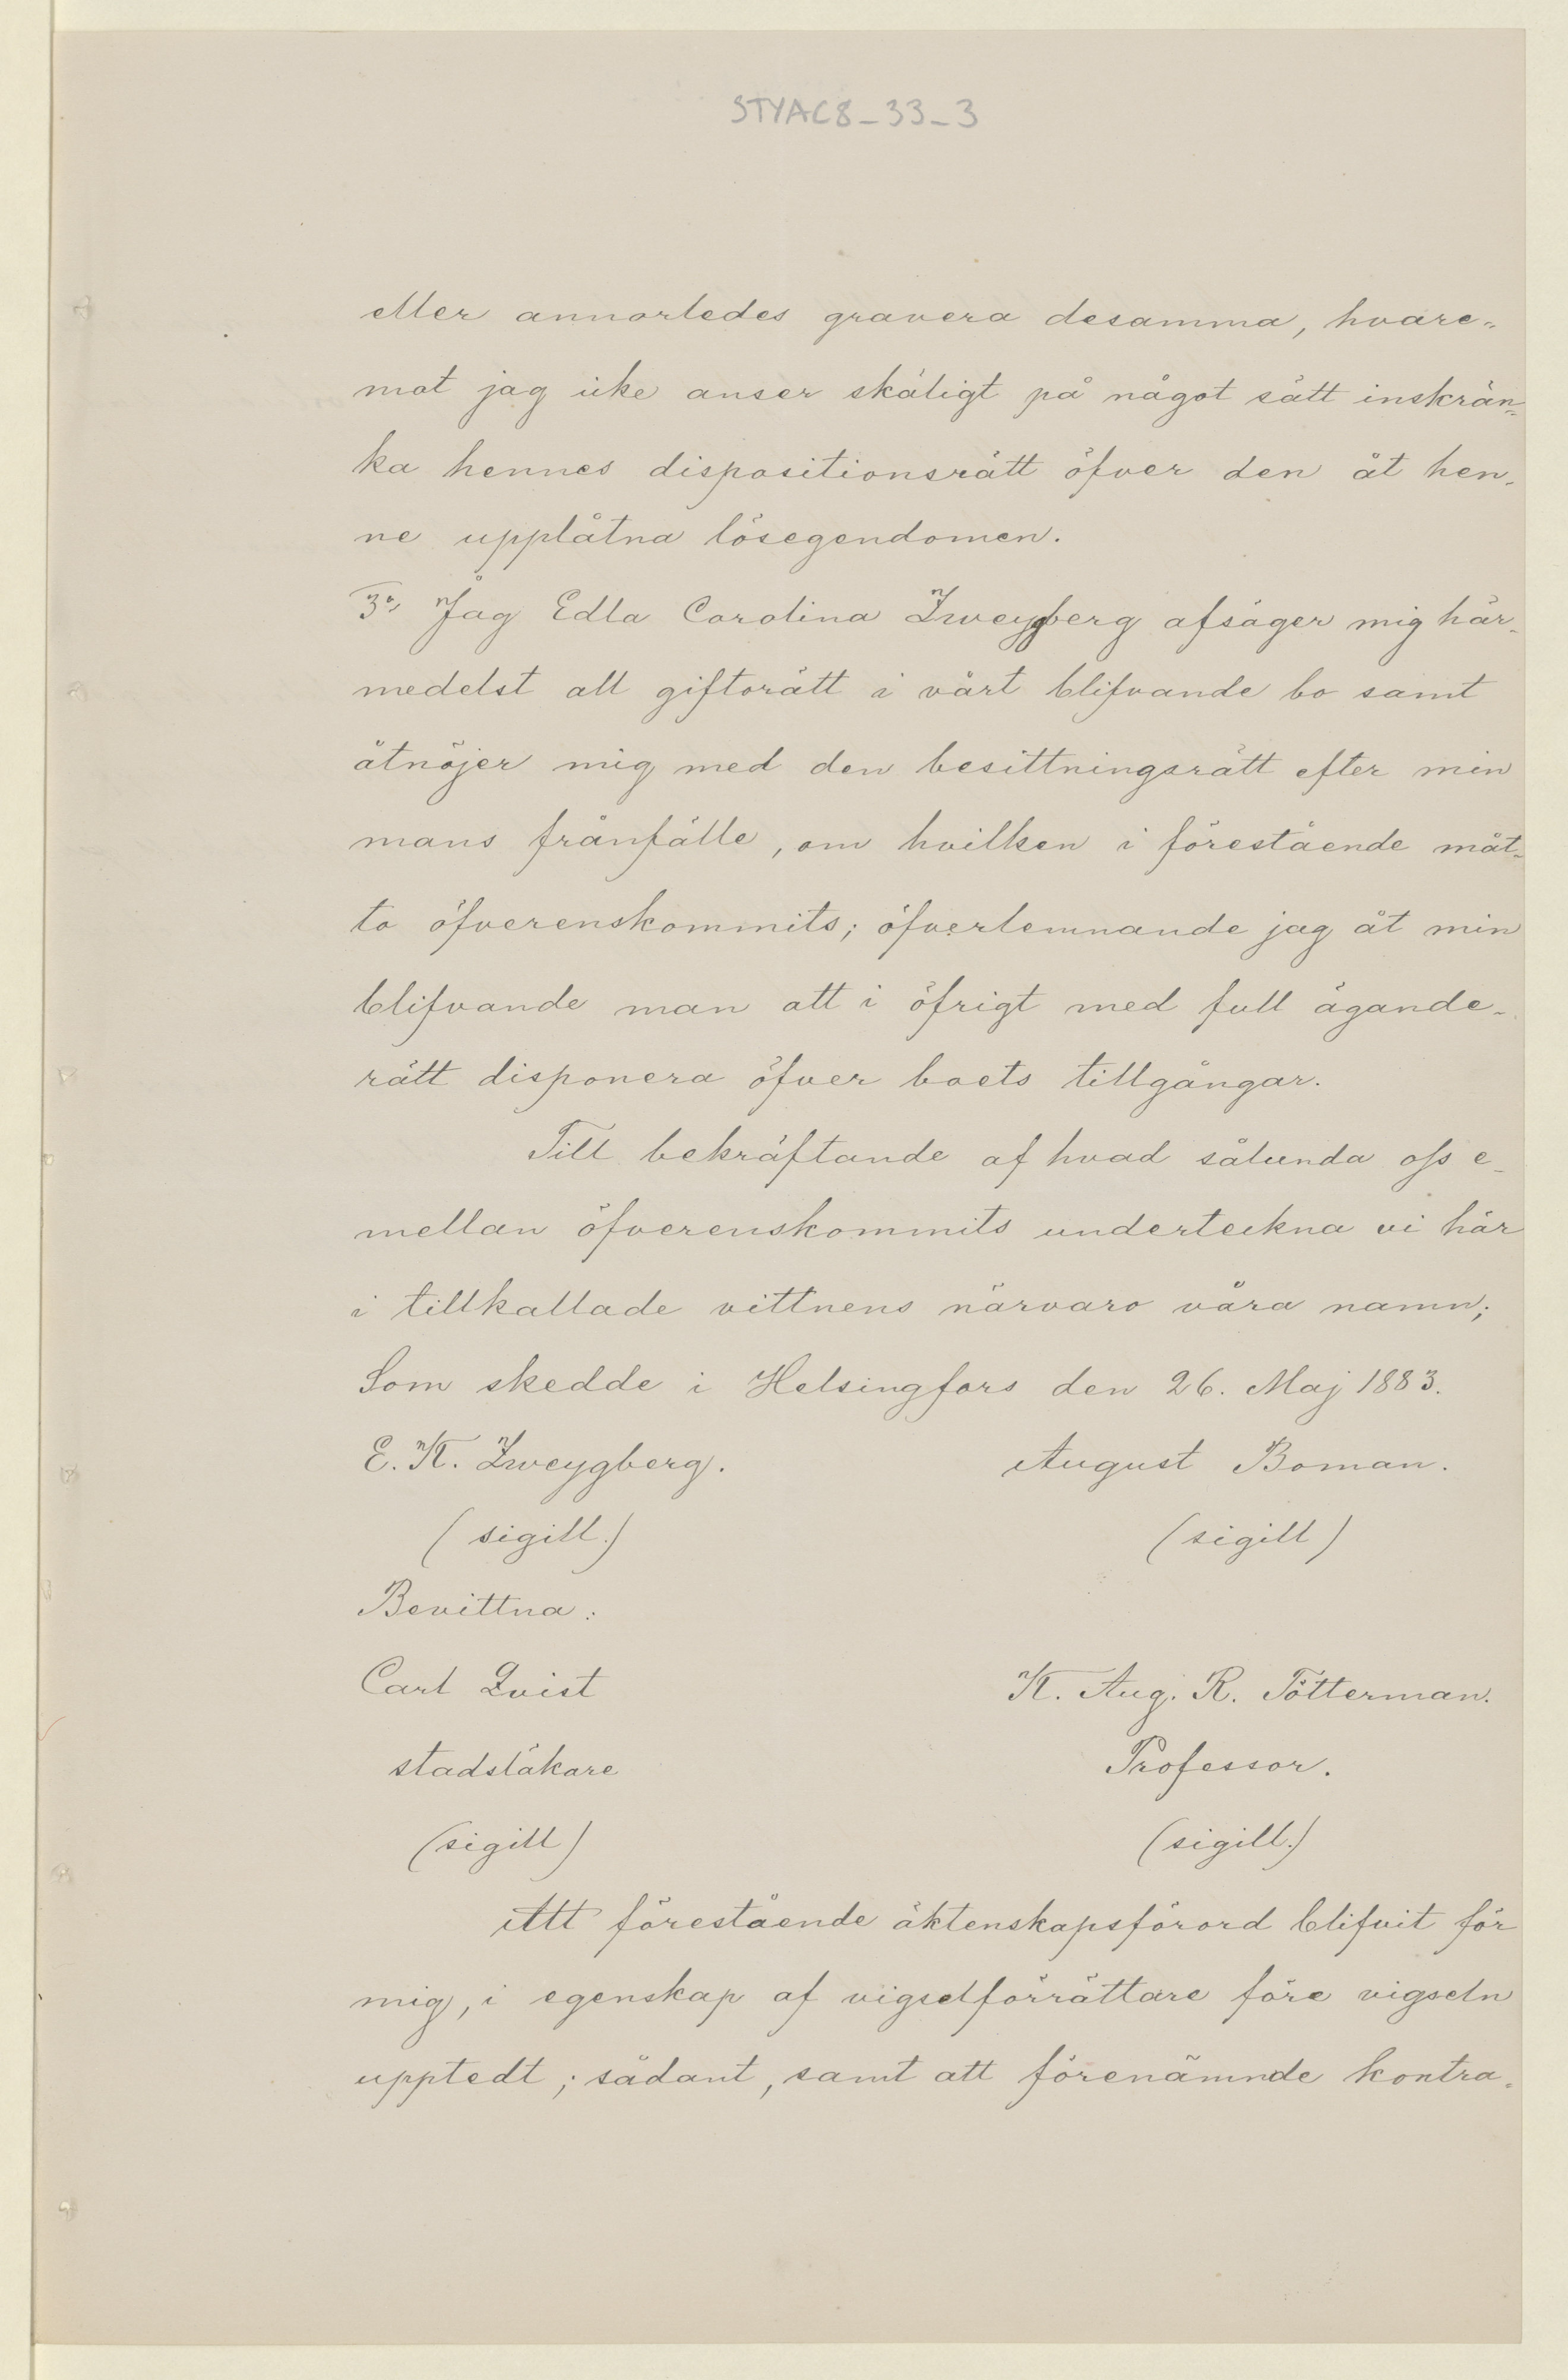 STYAC8_33_3
eller annorledes gravera desamma, hvare-
mot jag icke anser skäligt på något sätt inskrän-
ka hennes dispositionsrätt öfver den åt hen-
ne upplåtna lösegendomen.
3o, Jag Edla Carolina Zweygberg afsäger mig här-
medelst all giftorätt i vårt blifvande bo samt
åtnöjer mig med den besittningsrätt efter min
mans frånfälle, om hvilken i förestående måt-
to öfverenskommits; öfverlemnande jag åt min
blifvande man att i öfrigt med full ägande-
rätt disponera öfver boets tillgångar.
Till bekräftande af hvad sålunda oss e-
mellan öfverenskommits underteckna vi här
i tillkallade vittnens närvaro våra namn;
Som skedde i Helsingfors den 26. Maj 1883.
E. K. Zweygberg. August Boman.
(sigill.) (sigill)
Bevittna:
Carl Qvist K. Aug. R. Tötterman.
stadsläkare Professor.
(sigill) (sigill.)
Att förestående äktenskapsförord blifvit för
mig, i egenskap af vigselförrättare före vigseln
uppte​dt; sådant, samt att förenämnde kontra-